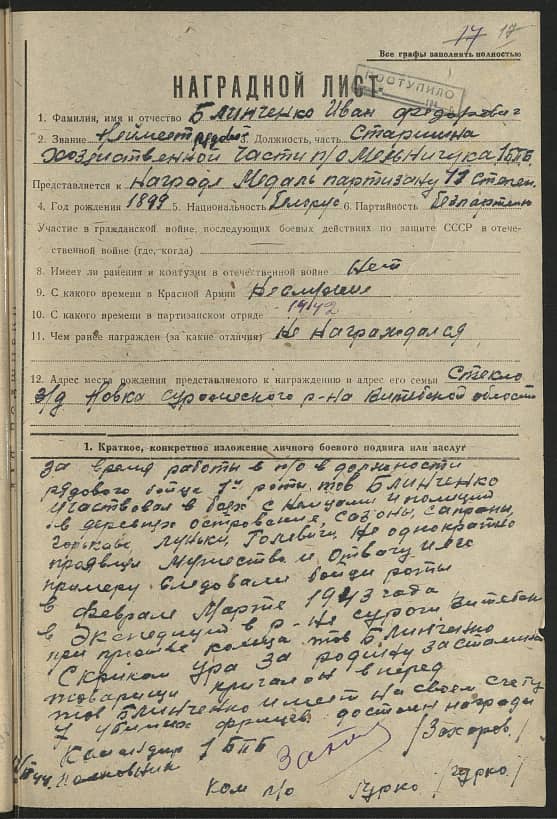 17 17
Все графы заполнять полностью
ПОСТУПИЛО
НАГРАДНОЙ ЛИСТ
1. Фамилия, имя и отчество Блинченко Иван Федорович
2. Звание Неимеет рядовой 3. Должность, часть Старшина
хозяйственной части п/о Мельничука 1БПБ
Представляется к Награде Медаль партизану II степен.
4. Год рождения 1899 5. Национальность Белорус 6. Партийность безпартийн
Участие в гражданской войне, последующих боевых действиях по защите СССР в отече-
ственной войне (где, когда)
8. Имеет ли ранения и контузии в отечественной войне Нет
9. С какого времени в Красной Армии
10. С какого времени в партизанском отряде 1942
11. Чем ранее награжден (за какие отличия) Не Награждался
12. Адрес места рождения представляемого к награждению и адрес его семьи Стекло
з/д Новка Суражского р-на Витебской области
1. Краткое, конкретное изложение личного боевого подвига или заслуг
за время работы в п/о в должности
рядового бойца 1й роты тов Блинченко
участвовал в боях с Немцами и полицией
в деревнях Сазоны, Сапраны,
Горькавы, Луньки, Голевичи, Не однократно
проявил Мужество и Отвагу и его
примеру следовали бойцы роты
в Феврале Марте 1943 года
в Экспедиции в р-не Сурож Витебск
при прорыве кольца тов Блинченко
С криком Ура За родину за Сталина
товарищи кричал он вперед
тов Блинченко имеет на своем счету
7 убитых фрицев достоин награды
Командир 1БПБ /Захаров/
44. Полковник
Ком п/о Гурко /Гурко/